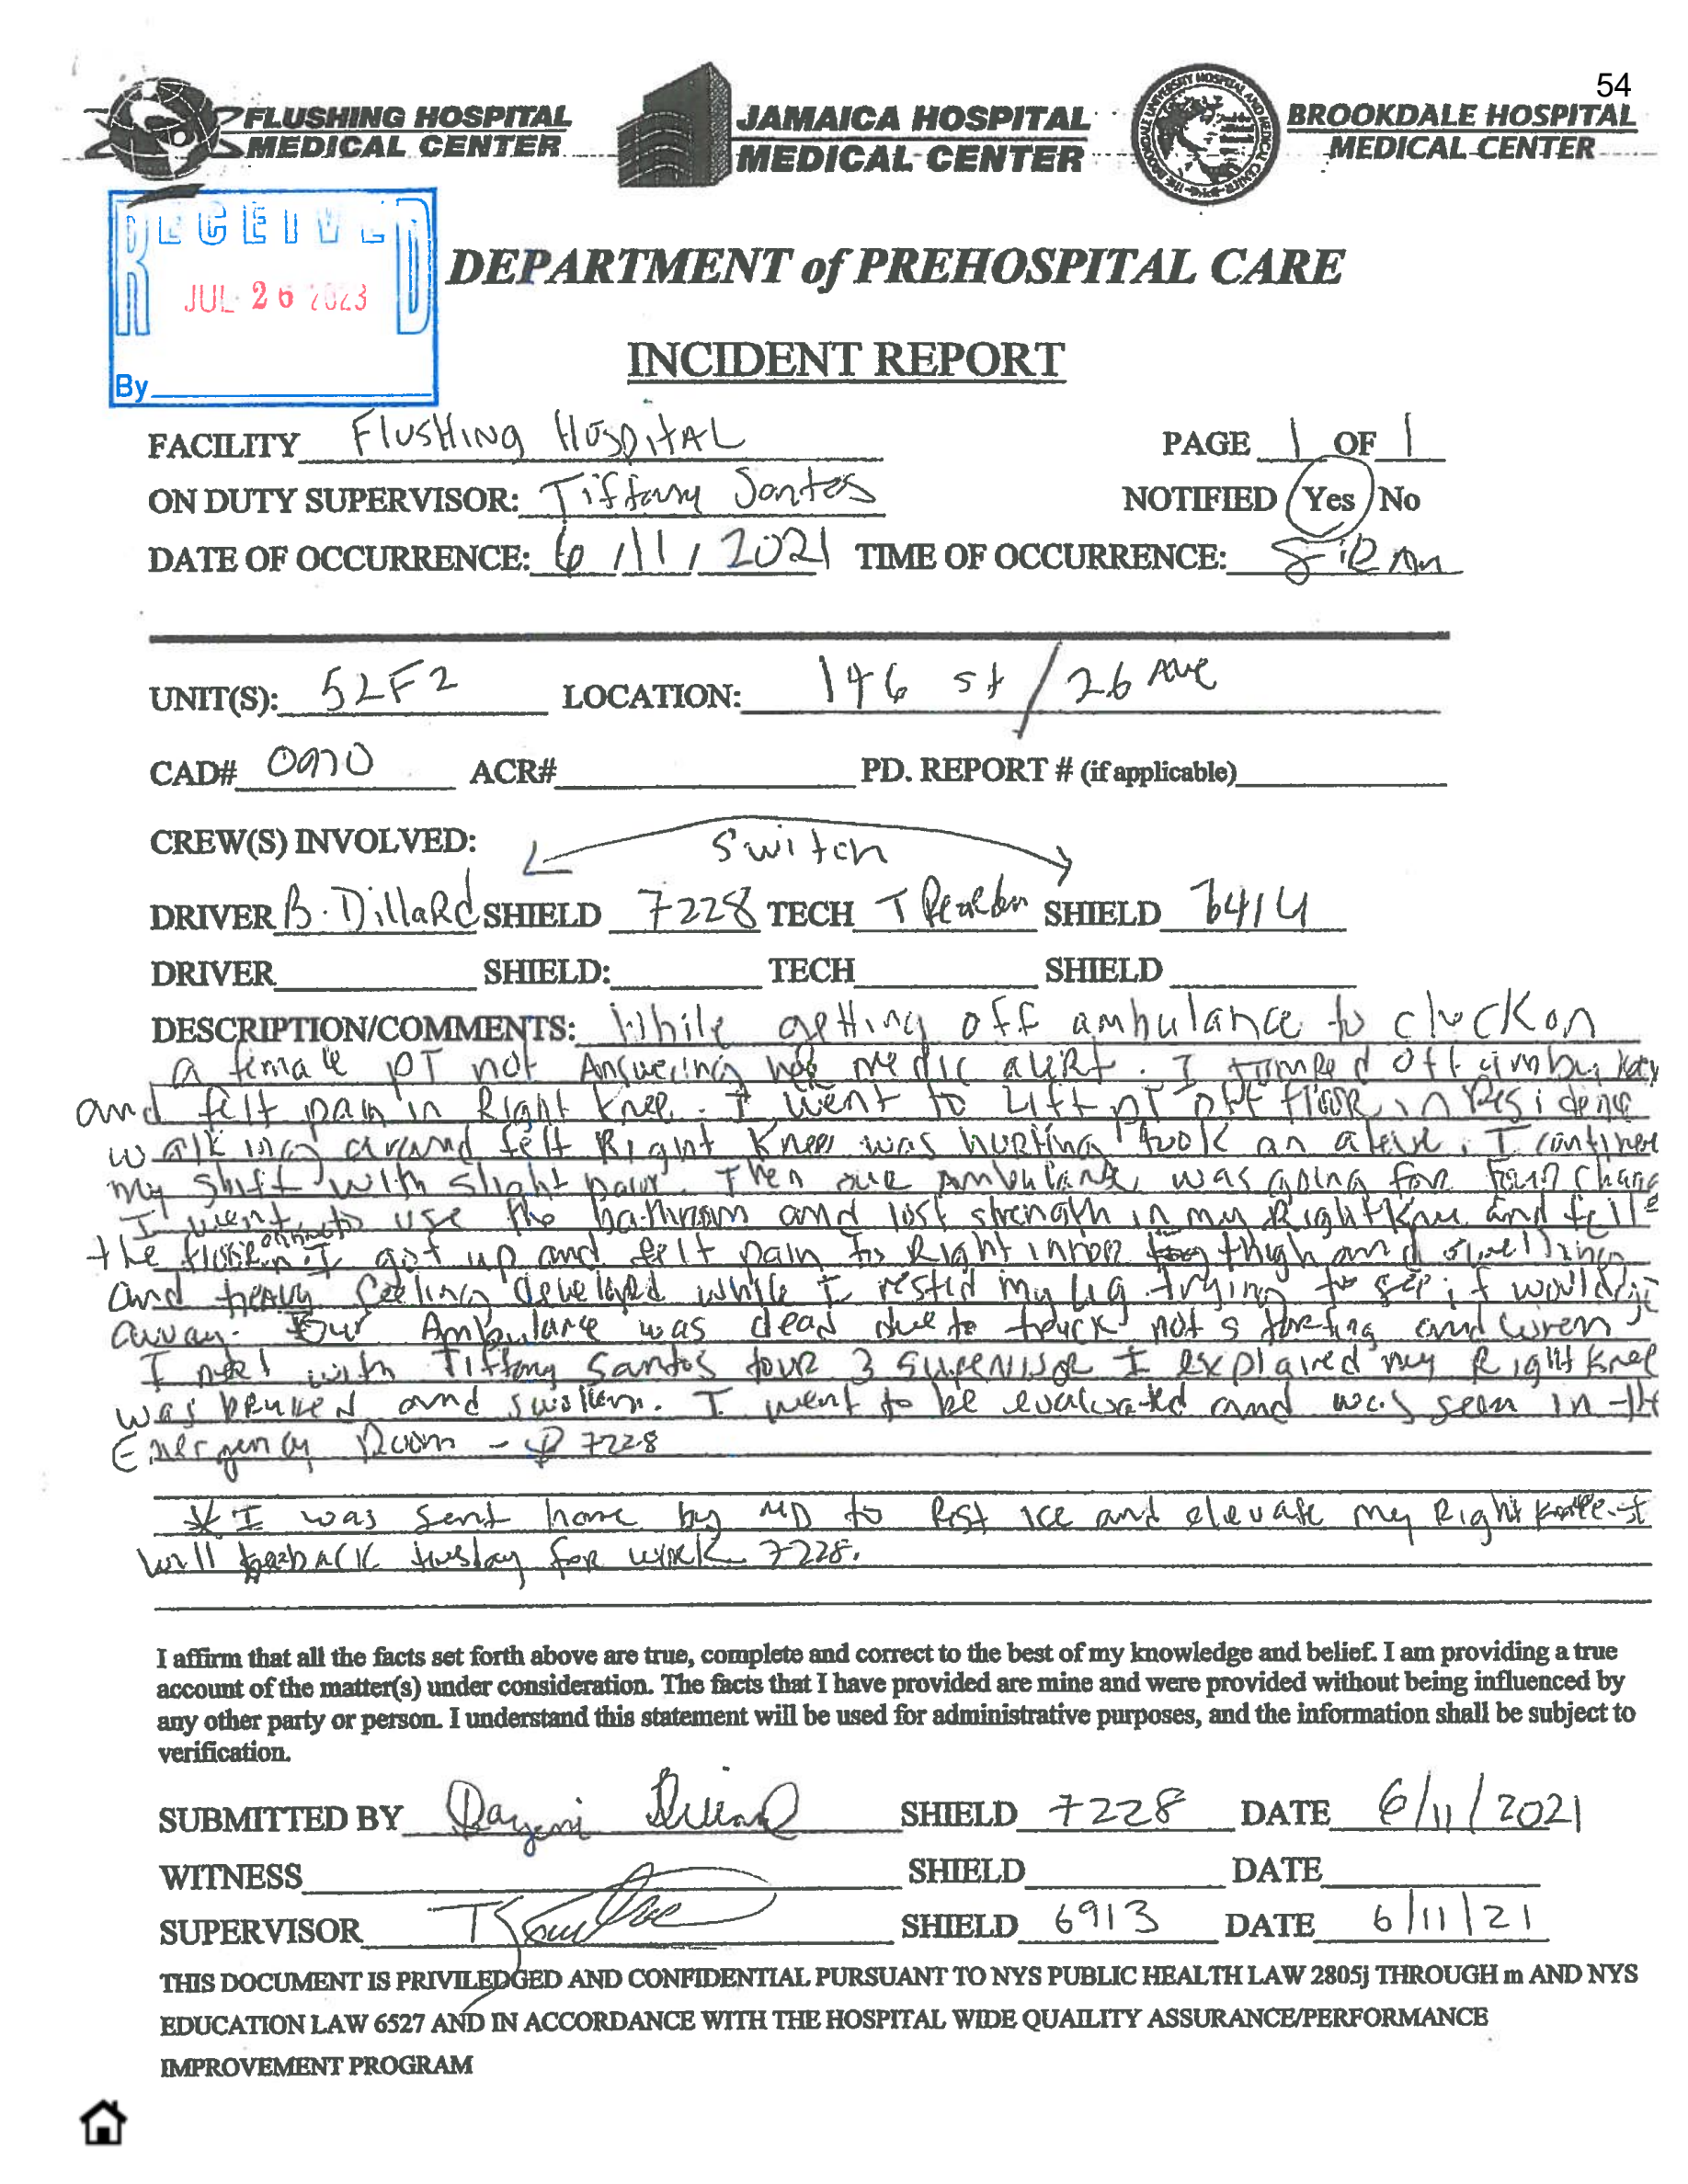 54
FLUSHING HOSPITAL
MEDICAL CENTER
JAMAICA HOSPITAL
MEDICAL CENTER
BROOKDALE HOSPITAL
MEDICAL CENTER
RECEIVED
JUL 26 2023
By
DEPARTMENT of PREHOSPITAL CARE
INCIDENT REPORT
FACILITY Flushing Hospital PAGE 1 OF 1
ON DUTY SUPERVISOR: Tiffany Santos NOTIFIED Yes / No
DATE OF OCCURRENCE: 6/11/2021 TIME OF OCCURRENCE: AM
UNIT(S): 52F2 LOCATION: 146 st / 26 Ave
CAD# 0970 ACR# PD. REPORT # (if applicable)
CREW(S) INVOLVED: Switch
DRIVER B. Dillard SHIELD 7228 TECH T SHIELD 6414
DRIVER SHIELD: TECH SHIELD
DESCRIPTION/COMMENTS: While getting off ambulance to check on
a female PT not Answering her medic alert. I jumped off
and felt pain in Right knee. I went to Lift PT off floor in Residence
walking around felt Right Knee was hurting took an aleve. I continue
my shift with slight pain. Then our Ambulance was going for tour change
I went to use the bathroom and lost strength in my Right Knee and fell
the floor. I got up and felt pain to Right inner thigh and swelling
and heavy feeling developed while I rested my leg trying to see if would go
away. Our Ambulance was dead due to truck not starting and when
I met with Tiffany Santos tour 3 supervisor I explained my Right Knee
was bruised and swollen. I went to be evaluated and was seen in the
Emergency Room - 7228
* I was sent home by MD to Rest ice and elevate my Right Knee. I
will be back tuesday for work 7228.
I affirm that all the facts set forth above are true, complete and correct to the best of my knowledge and belief. I am providing a true
account of the matter(s) under consideration. The facts that I have provided are mine and were provided without being influenced by
any other party or person. I understand this statement will be used for administrative purposes, and the information shall be subject to
verification.
SUBMITTED BY SHIELD 7228 DATE 6/11/2021
WITNESS SHIELD DATE
SUPERVISOR SHIELD 6913 DATE 6/11/21
THIS DOCUMENT IS PRIVILEDGED AND CONFIDENTIAL PURSUANT TO NYS PUBLIC HEALTH LAW 2805j THROUGH m AND NYS
EDUCATION LAW 6527 AND IN ACCORDANCE WITH THE HOSPITAL WIDE QUAILITY ASSURANCE/PERFORMANCE
IMPROVEMENT PROGRAM